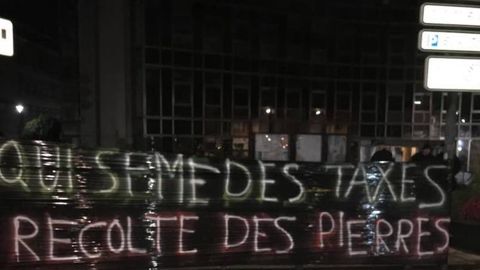 QUI SEME DES TAXES
RECOLTE DES PIERRES